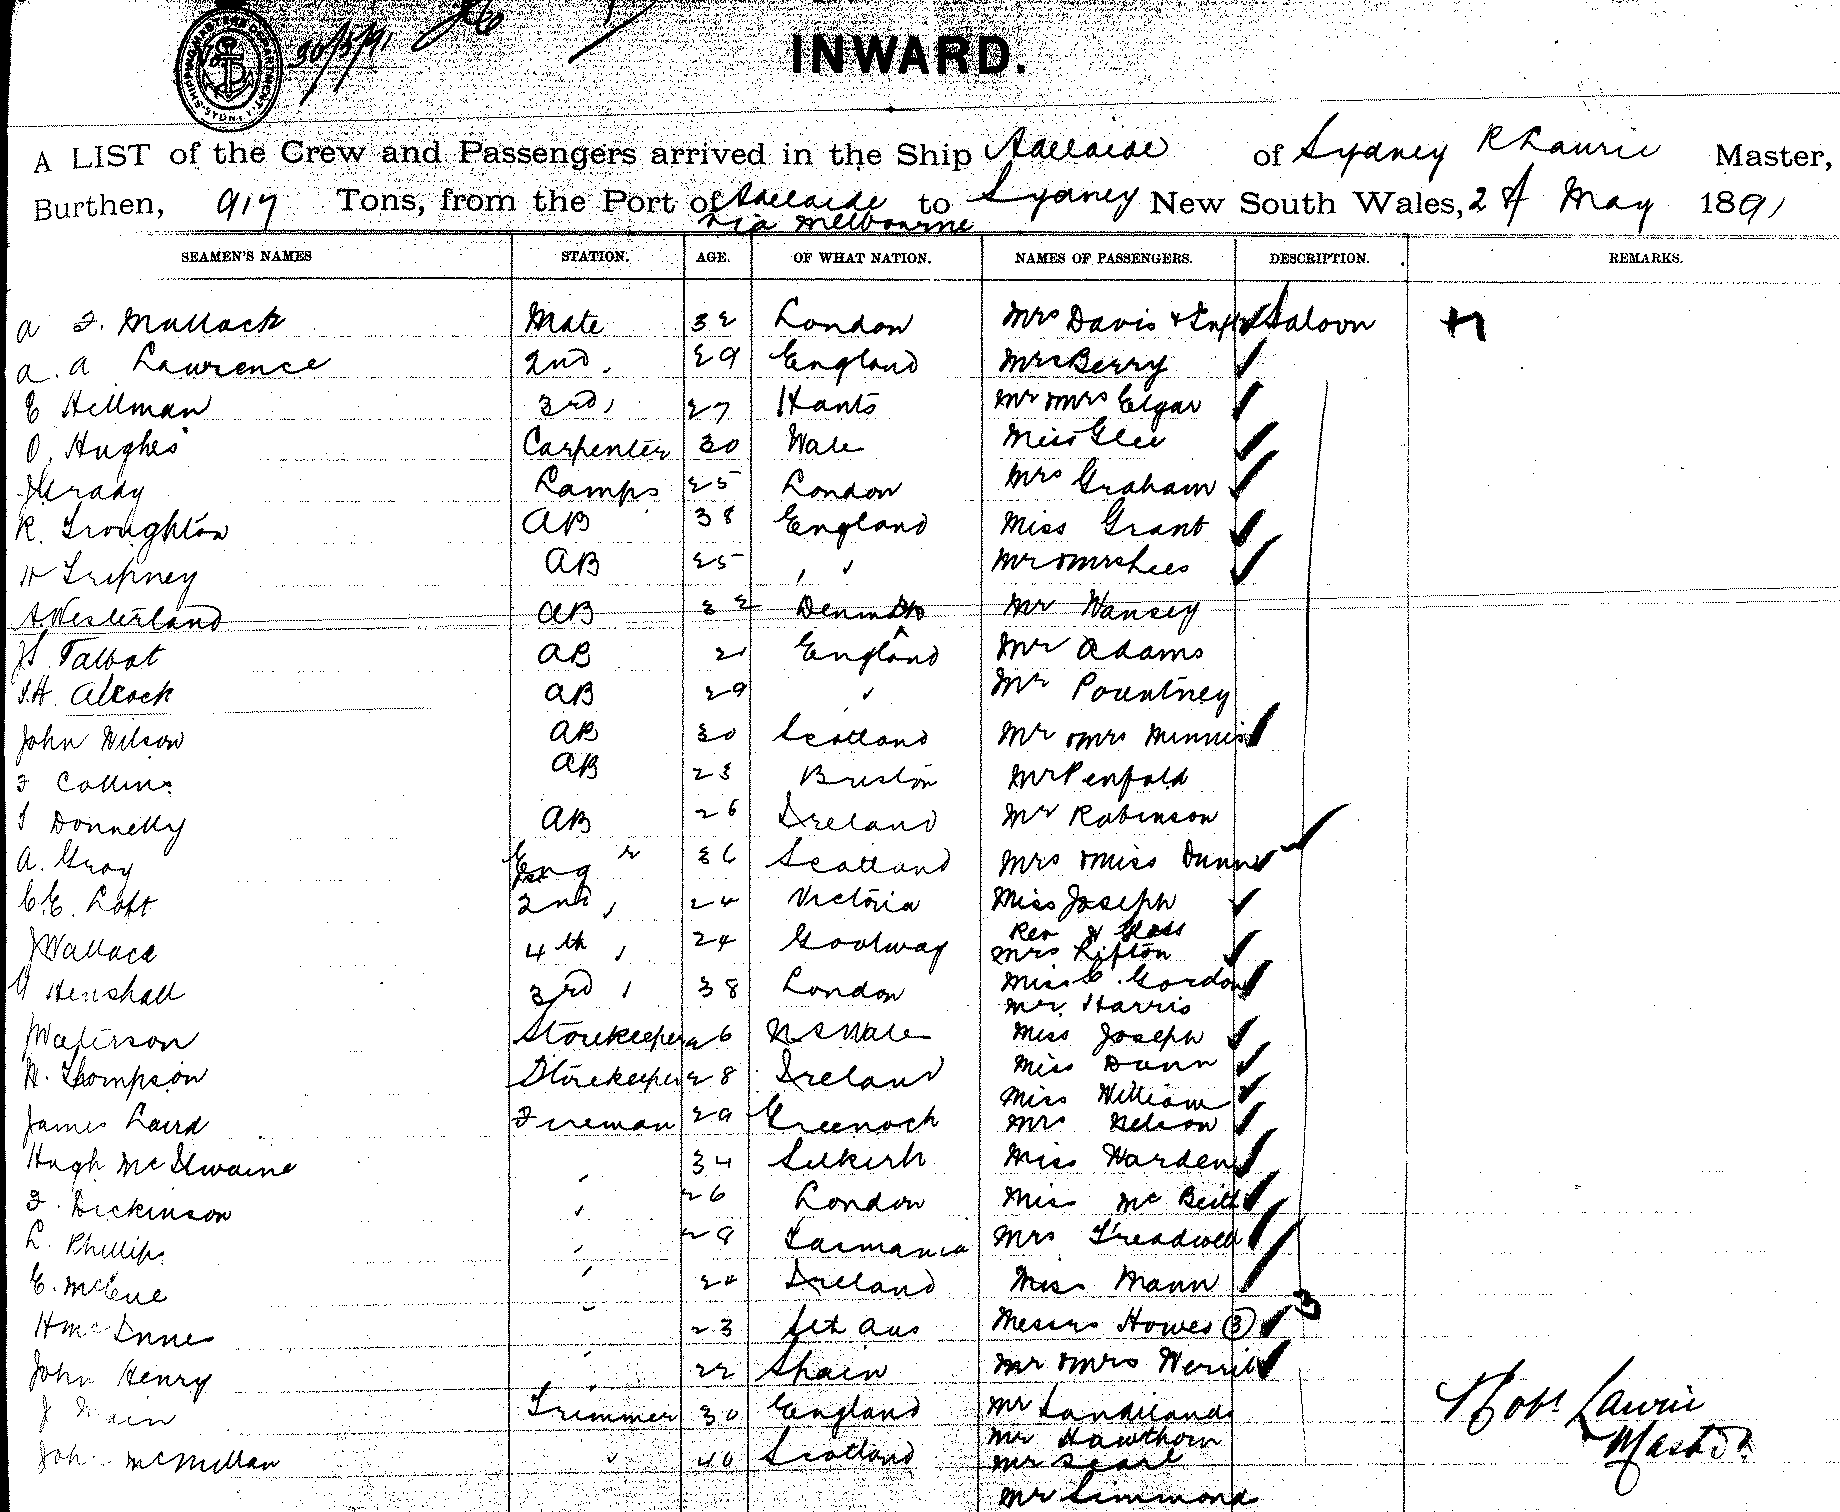 30/5/91
INWARD.
A LIST of the Crew and Passengers arrived in the Ship Adelaide of Sydney R Laurie Master,
Burthen, 917 Tons, from the Port of Adelaide to Sydney New South Wales, 2 May 1891
via Melbourne
SEAMEN'S NAMES STATION. AGE. OF WHAT NATION. NAMES OF PASSENGERS. DESCRIPTION. REMARKS.
Mullock Mate 32 London Mrs Davis & Inft Saloon
a. a Lawrence 2nd. 29 England Mrs Berry
E Hillman 3rd, 27 Hants Mr & Mrs Elgar
O. Hughes Carpenter 30 Wale Miss Glee
J Grady Lamps 25 London Mrs Graham
R. Troughton AB 38 England Miss Grant
H Tripney AB 25 " Mr & Mrs Lees
A Westerland AB 32 Mr Wansey
Talbot AB 21 England Mr Adams
Alcock AB 29 " Mr Pountney
John Wilson AB 30 Scotland Mr & Mrs
Collins AB 23 Mr Penfold
Donnelly AB 26 Ireland Mr Robinson
A. Gray Engr 36 Scotland Mrs & Miss Dunn
C.E. Loft 2nd, 24 Victoria Miss Joseph
J Wallace 4th, 24 Goolway Rev J Glass
Mrs Lifton
Henshall 3rd, 38 London Miss C. Gordon
Mr. Harris
J Waterson Storekeeper 26 N S Wale Miss Joseph
H. Thompson Storekeeper 28 Ireland Miss Dunn
Miss William
James Laird Fireman 29 Greenock Mrs Nelson
Hugh McIlwaine " 34 Selkirk Miss Warden
F. Dickinson " 26 London Miss
L. Phillips " 28 Tasmania Mrs Treadwell
E. McEue " 24 Ireland Miss Mann
H McInnes " 23 Sth Aus Messrs Howes (3) 3
John Henry " 22 Spain Mr & Mrs
J Trimmer 30 England Mr Sandilands Robt Laurie
Mr Hawthorn Master
McMillan " 40 Scotland Mr Searl
Mr Simmond